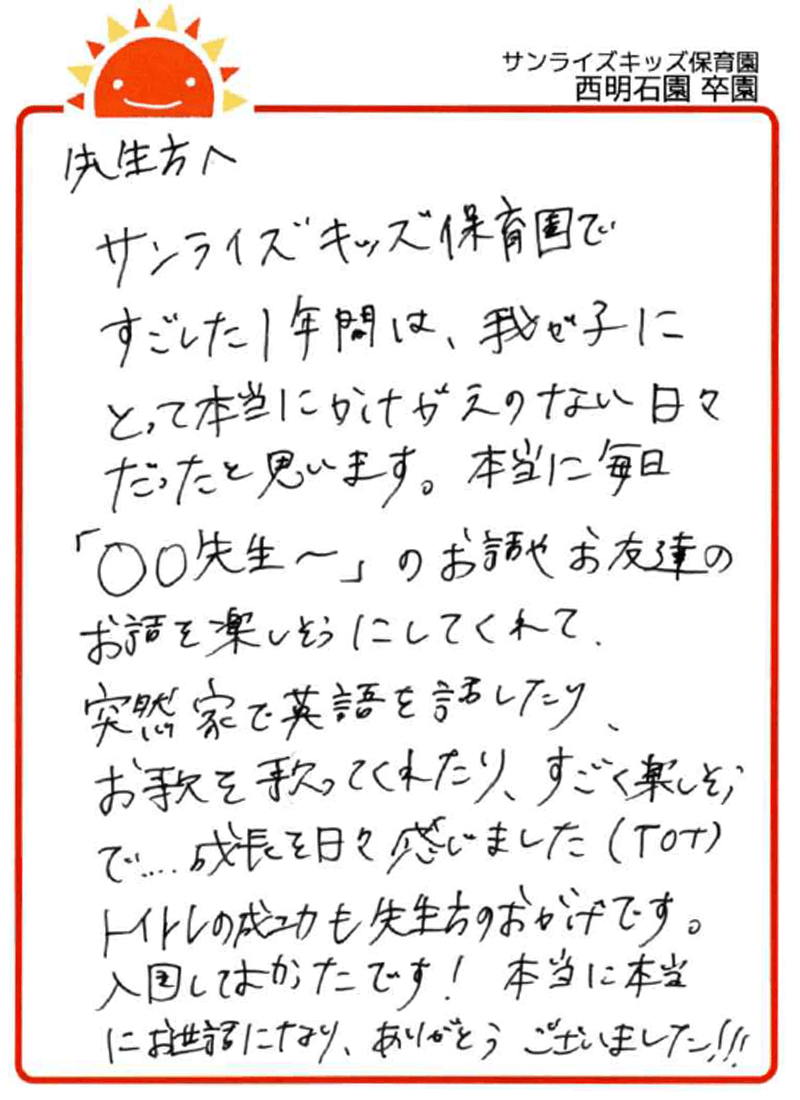 サンライズキッズ保育園
西明石園 卒園
先生方へ
サンライズキッズ保育園で
すごした1年間は、我が子に
とって本当にかけがえのない日々
だったと思います。本当に毎日
「〇〇先生～」のお話やお友達の
お話を楽しそうにしてくれて、
突然家で英語を話したり、
お歌を歌ってくれたり、すごく楽しそう
で....成長を日々感じました(ToT)
トイトレの成功も先生方のおかげです。
入園してよかったです！ 本当に本当
にお世話になり、ありがとう ございました!!!